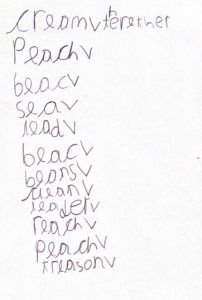 cream✓ therether
Peach✓
beac✓
sea✓
read✓
beac✓
beans✓
clean✓
leader✓
reach✓
Peach✓
treason✓